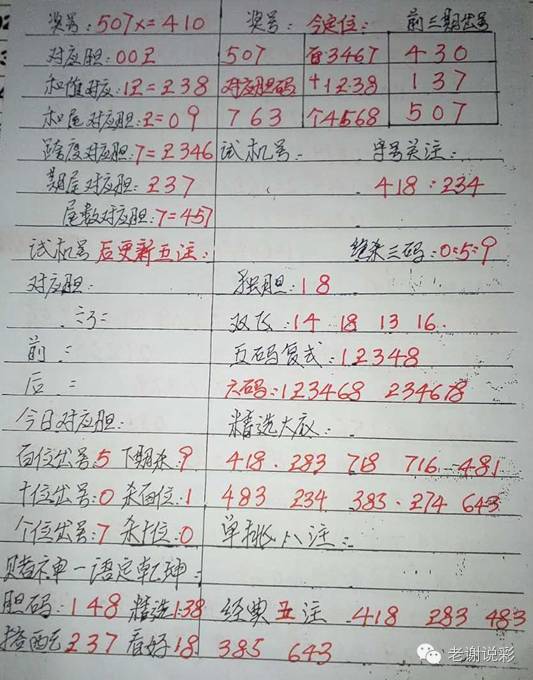 奖号:507x=410 奖号: 今定位: 前三期出号
对应胆:00 507 百3467 430
和值对应:12=238 对应胆码 十1238 137
和尾对应胆:2=09 763 个4568 507
跨度对应胆:7=2346 试机号: 字号关注:
期尾对应胆:237 418:234
尾数对应胆:7=457
试机号后更新五注: 绝杀三码:0:5:9
对应胆: 独胆:18
双飞:14 18 13 16.
前: 五码复式:12348
后: 六码:123468 234678
今日对应胆: 精选大底:
百位出号:5 下期杀:9 418. 283 718 716 481
十位出号:0 杀百位:1 483 234 383. 274 643
个位出号:7 杀十位:0 单挑八注:
赌神一语定乾坤:
胆码:148 精选138 经典五注 418 283 483
搭配237 看好18 385 643
老谢说彩